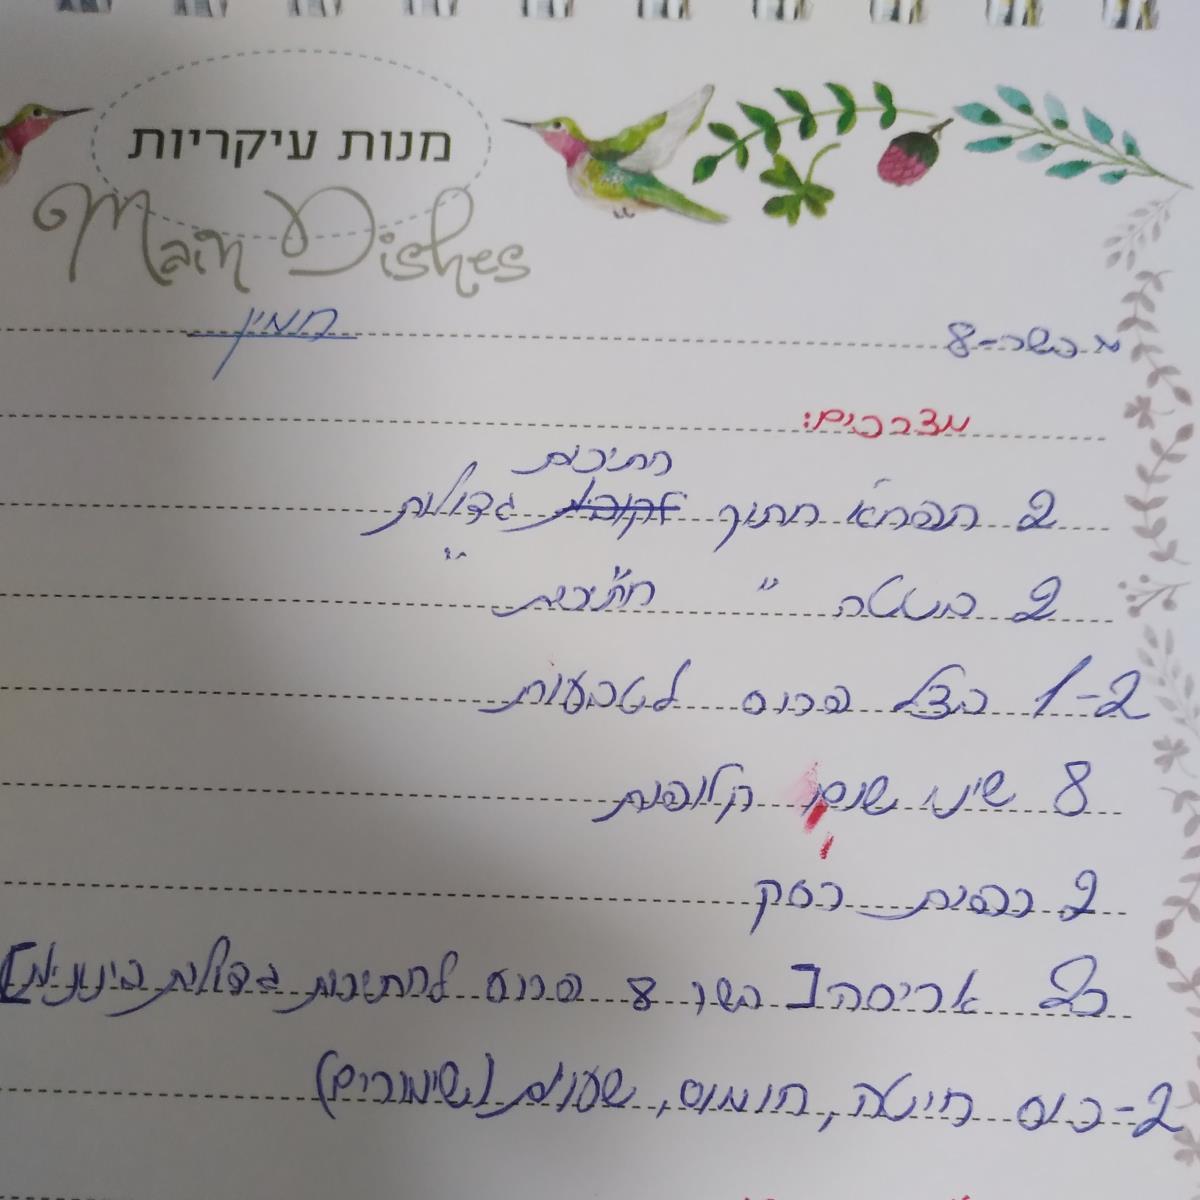 מנות עיקריות
Main Dishes
חמין
מבשר-8
מצרכים:
חתיכות
2 תפחא חתוך גדולות
2 בטטה " חתיכות "
1-2 בצל פרוס לטבעות
8 שיני שום קלופות
2 כפות רסק
כ2 אריסה [בשר 8 פרוס לחתיכות גדולות בינוניות]
2-כוס חיטה, חומוס, שעועית (שימורים)